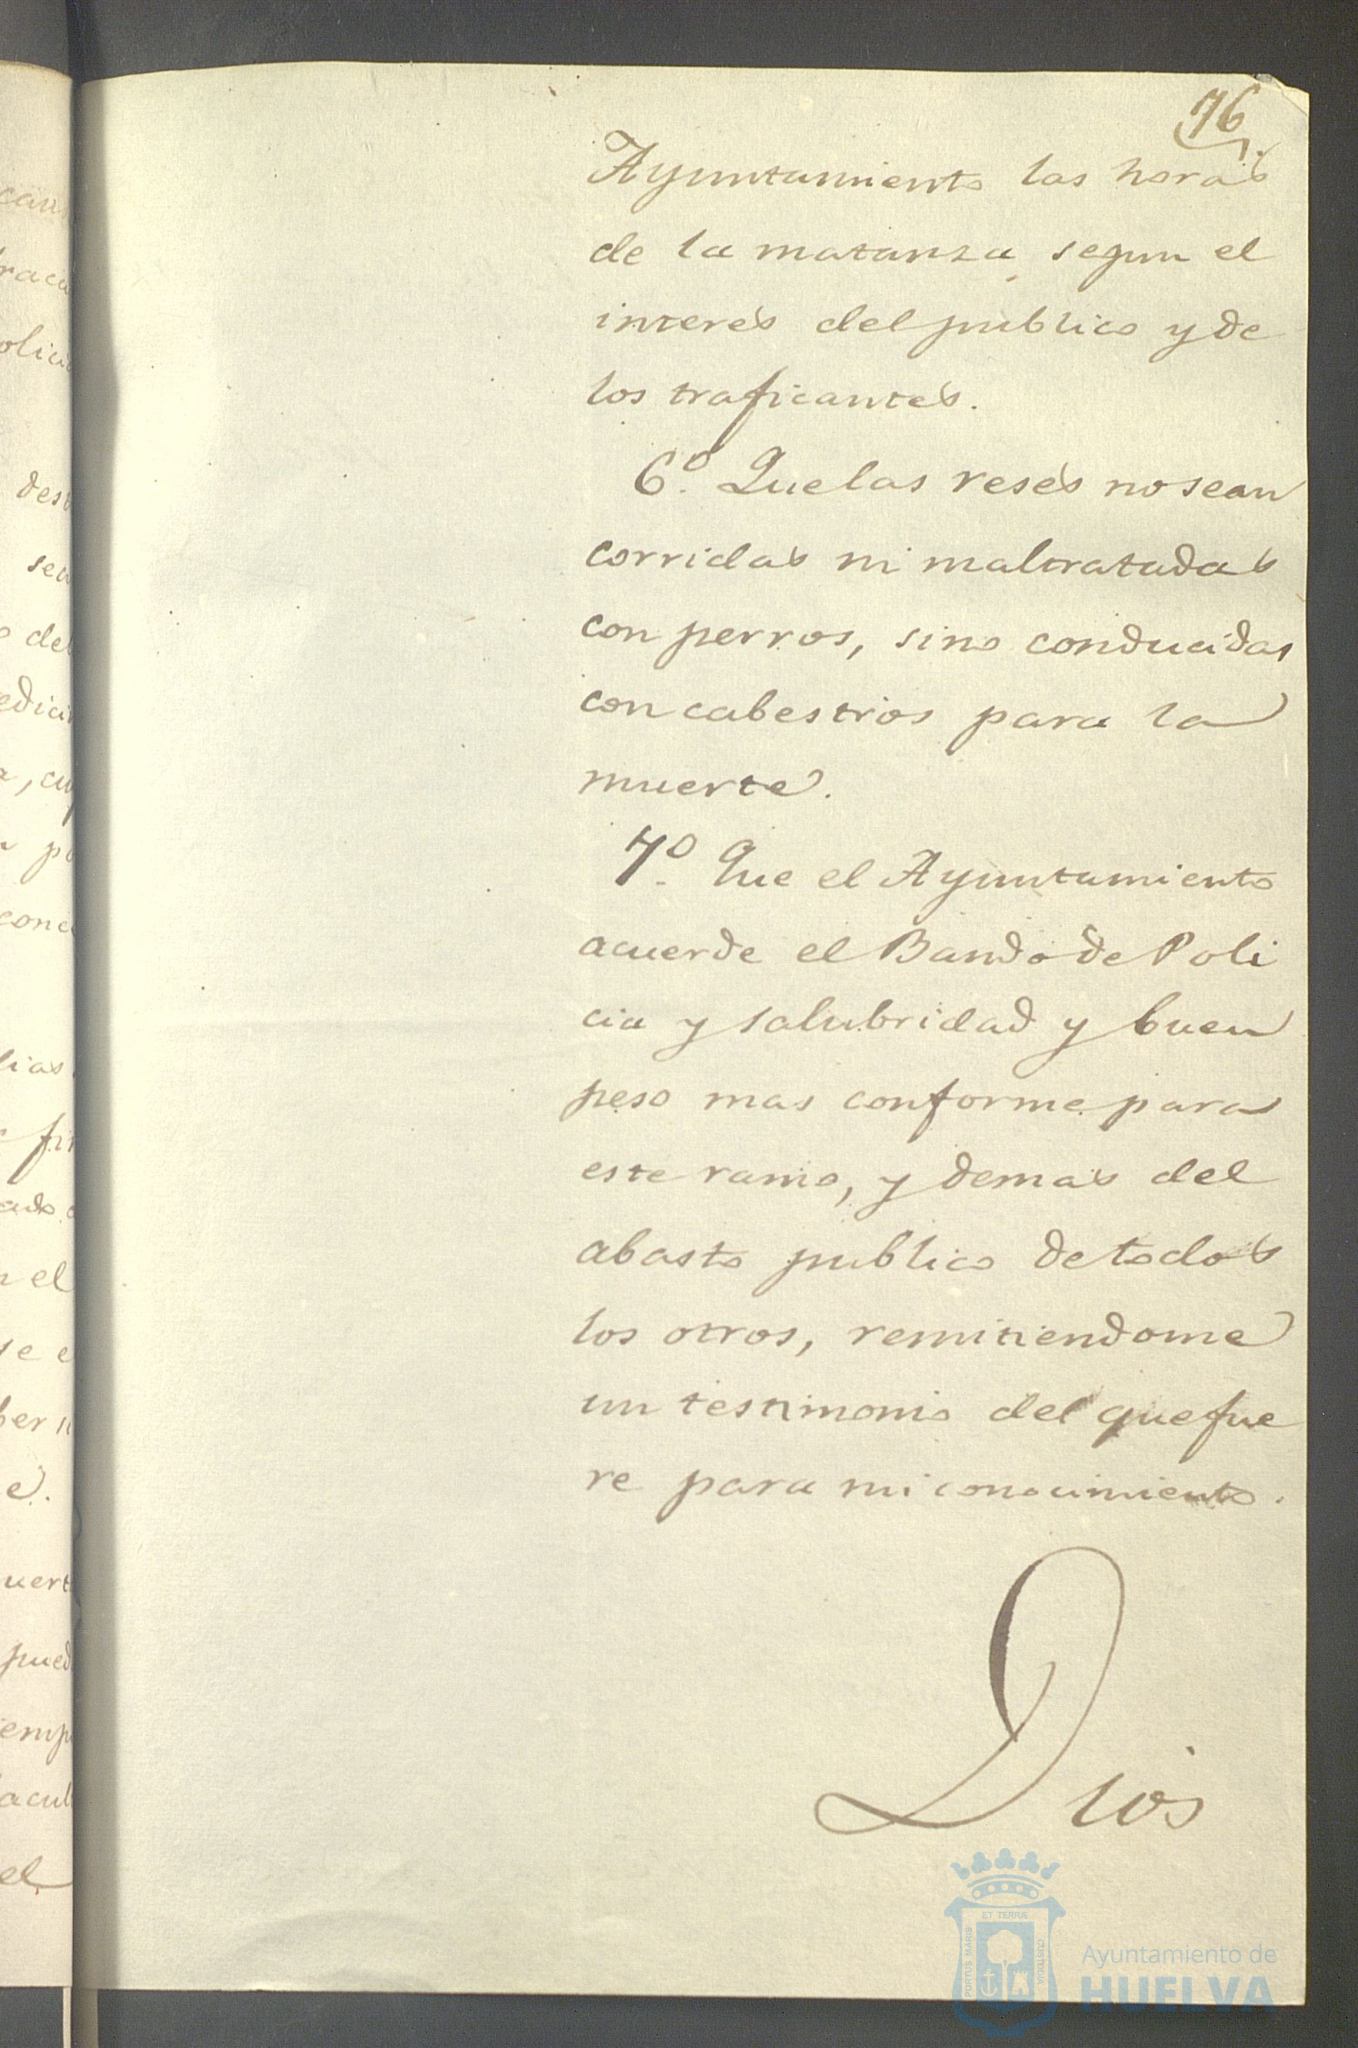 76
Ayuntamiento las horas
de la matanza segun el
interes del publico y de
los traficantes.
6º. Que las reses no sean
corridas ni maltratadas
con perros, sino conducidas
con cabestros para la
muerte.
7º. Que el Ayuntamiento
acuerde el Bando de Poli
cia y salubridad y buen
peso mas conforme para
este ramo, y demas del
abasto publico de todos
los otros, remitiendome
un testimonio del que fue
re para mi conocimiento.
Dios
desd
del
conc
fin
el
se e
e.
pued
el
PORTUS MARIS
ET TERRÆ
CUSTODIA
Ayuntamiento de
HUELVA